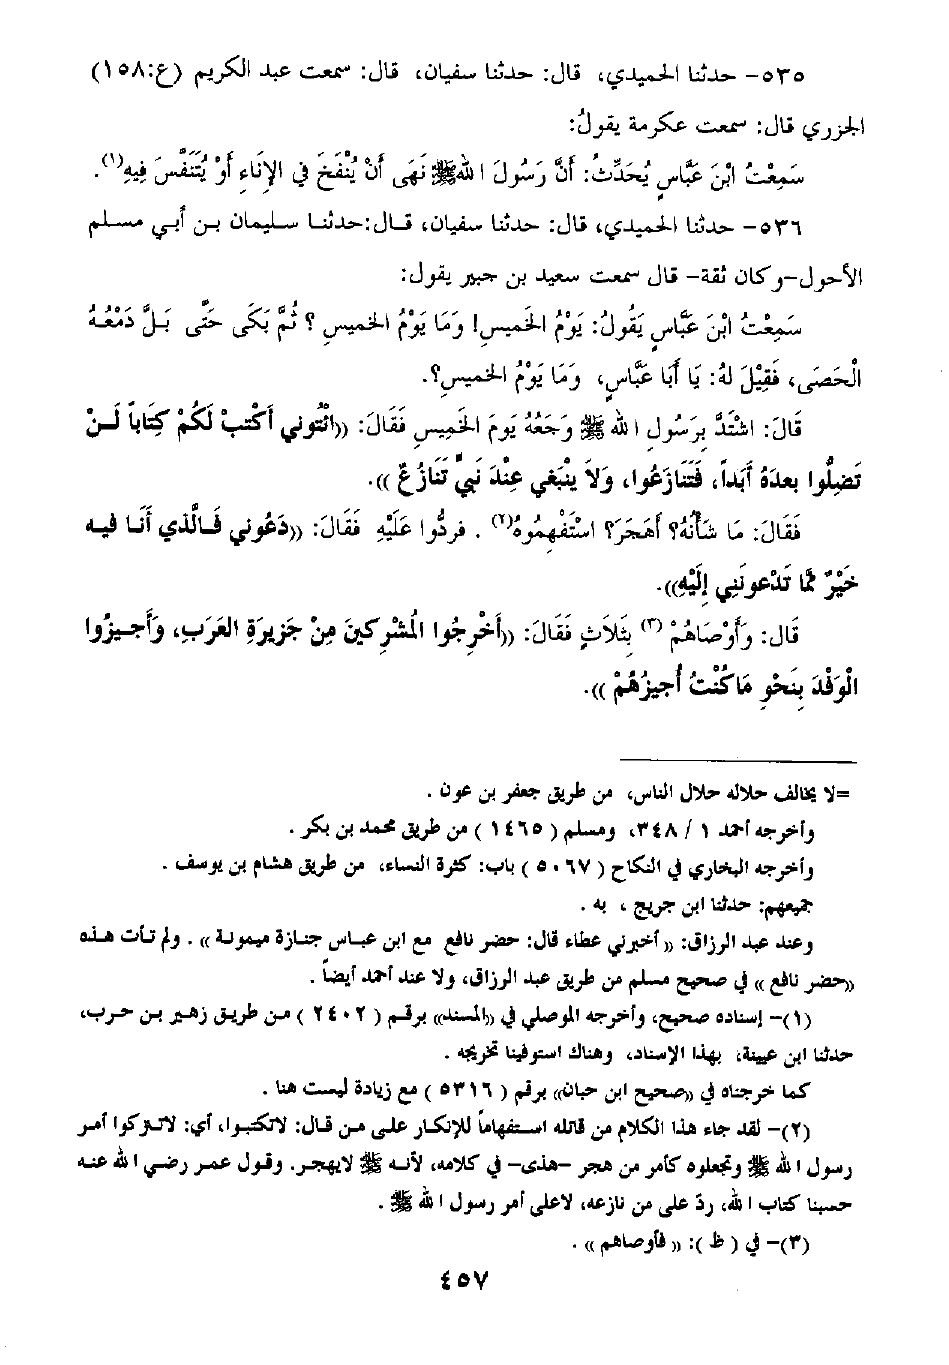 ٥٣٥- حدثنا الحميدي، قال: حدثنا سفيان، قال: سمعت عبد الكريم (ع:١٥٨)
الجزري قال: سمعت عكرمة يقولُ:
سَمِعْتُ ابْنَ عَبَّاسٍ يُحَدِّثُ: أَنَّ رَسُولَ اللهِ ﷺ نَهَى أَنْ يُنْفَخَ في الإِنَاءِ أَوْ يُتَنَفَّسَ فِيهِ(١).
٥٣٦- حدثنا الحميدي، قال: حدثنا سفيان، قال:حدثنا سليمان بن أبي مسلم
الأحول-وكان ثقة- قال سمعت سعيد بن جبير يقول:
سَمِعْتُ ابْنَ عَبَّاسٍ يَقُولُ: يَوْمُ الخَمِيسِ! وَمَا يَوْمُ الخميسِ ؟ ثُمَّ بَكَى حَتَّى بَلَّ دَمْعُهُ
الْحَصَى، فَقِيْلَ لَهُ: يَا أَبَا عَبَّاسٍ، وَمَا يَوْمُ الخميسِ؟.
قَالَ: اشْتَدَّ بِرَسُولِ اللهِ ﷺ وَجَعُهُ يَومَ الخَمِيسِ فَقَالَ: ((ائْتُوني أَكْتبْ لَكُمْ كِتَاباً لَنْ
تَضِلُّوا بعدَهُ أَبَداً، فَتَنَازَعُوا، وَلاَ يَنْبَغي عِنْدَ نَبيٍّ تَنَازُعٌ )).
فَقَالَ: مَا شَأْنُهُ؟ أَهَجَرَ؟ اسْتَفْهِمُوهُ(٢) . فردُّوا عَلَيْهِ فَقَالَ: ((دَعُوني فَالَّذي أَنَا فيه
خَيْرٌ مِمَّا تَدْعونَنِي إِلَيْهِ)).
قَال: وَأَوْصَاهُمْ (٣) بِثَلاَثٍ فَقَالَ: ((أَخْرِجُوا المُشْرِكينَ مِنْ جَزِيرَةِ العَرَبِ، وَأَجيزُوا
الْوَفْدَ بِنَحْوِ مَا كُنْتُ أُجيزُهُمْ )).
=لا يخالف حلاله حلال الناس، من طريق جعفر بن عون .
وأخرجه أحمد ١ / ٣٤٨، ومسلم ( ١٤٦٥ ) من طريق محمد بن بكر .
وأخرجه البخاري في النكاح ( ٥٠٦٧ ) باب: كثرة النساء، من طريق هشام بن يوسف .
جميعهم: حدثنا ابن جريج ، به .
وعند عبد الرزاق: (( أخبرني عطاء قال: حضر نافع مع ابن عباس جنازة ميمونة )) . ولم تأت هذه
((حضر نافع )) في صحيح مسلم من طريق عبد الرزاق، ولا عند أحمد أيضاً .
(١)- إسناده صحيح، وأخرجه الموصلي في ((المسند)) برقم ( ٢٤٠٢ ) من طريق زهير بن حرب،
حدثنا ابن عيينة، بهذا الإسناد، وهناك استوفينا تخريجه .
كما خرجناه في ((صحيح ابن حبان)) برقم ( ٥٣١٦ ) مع زيادة ليست هنا .
(٢)- لقد جاء هذا الكلام من قائله استفهاماً للإنكار على من قال: لاتكتبوا، أي: لاتتركوا أمر
رسول الله ﷺ وتجعلوه كأمر من هجر -هذى- في كلامه، لأنه ﷺ لايهجر. وقول عمر رضي الله عنه
حسبنا كتاب الله، ردّ على من نازعه، لاعلى أمر رسول الله ﷺ .
(٣)- في ( ظ ): (( فأوصاهم )) .
٤٥٧